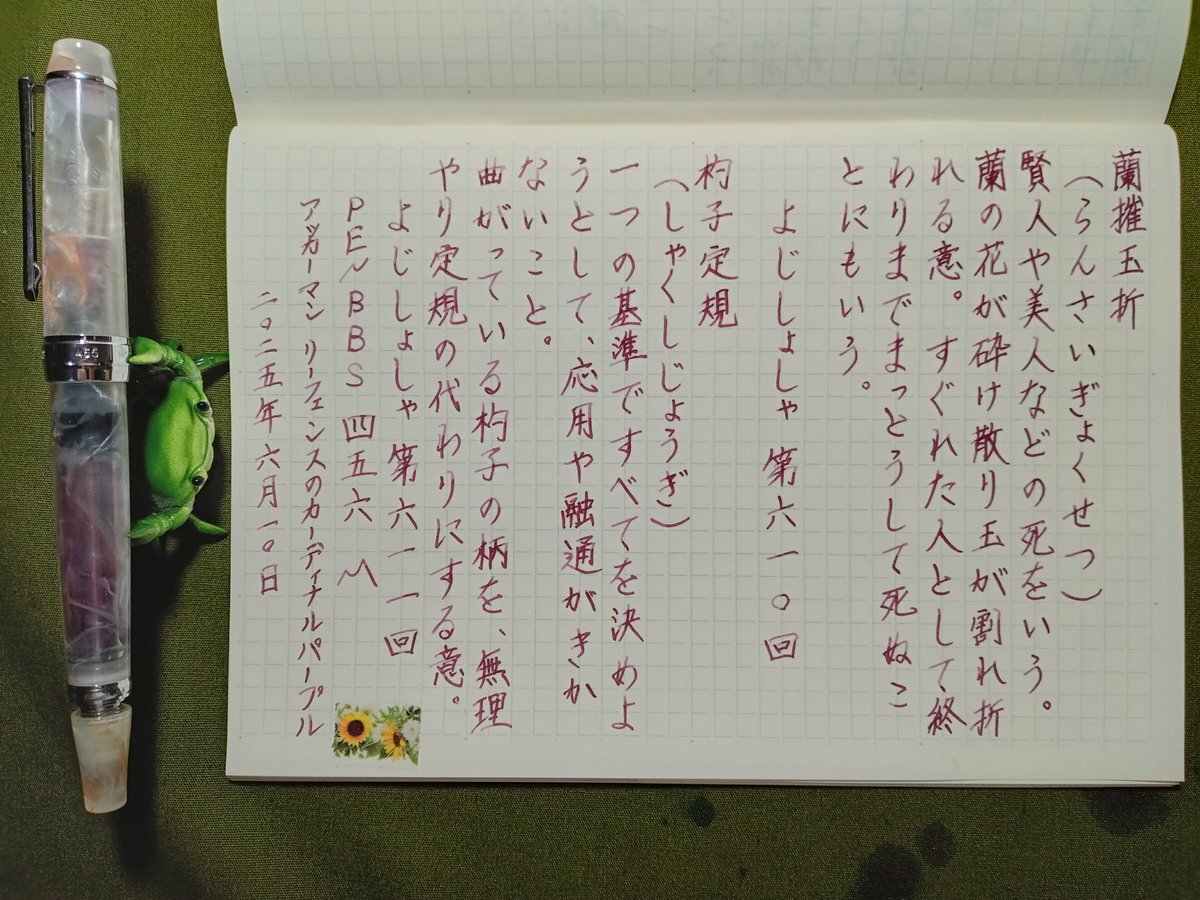 蘭摧玉折
(らんさいぎょくせつ)
賢人や美人などの死をいう。
蘭の花が砕け散り玉が割れ折
れる意。すぐれた人として終
わりまでまっとうして死ぬこ
とにもいう。
よじしょしゃ 第六一〇回
杓子定規
(しゃくしじょうぎ)
一つの基準ですべてを決めよ
うとして、応用や融通がきか
ないこと。
曲がっている杓子の柄を、無理
やり定規の代わりにする意。
よじしょしゃ 第六一一回
PENBBS 四五六 M
アッカーマン リーフェンスのカーディナルパープル
二〇二五年六月一〇日
456